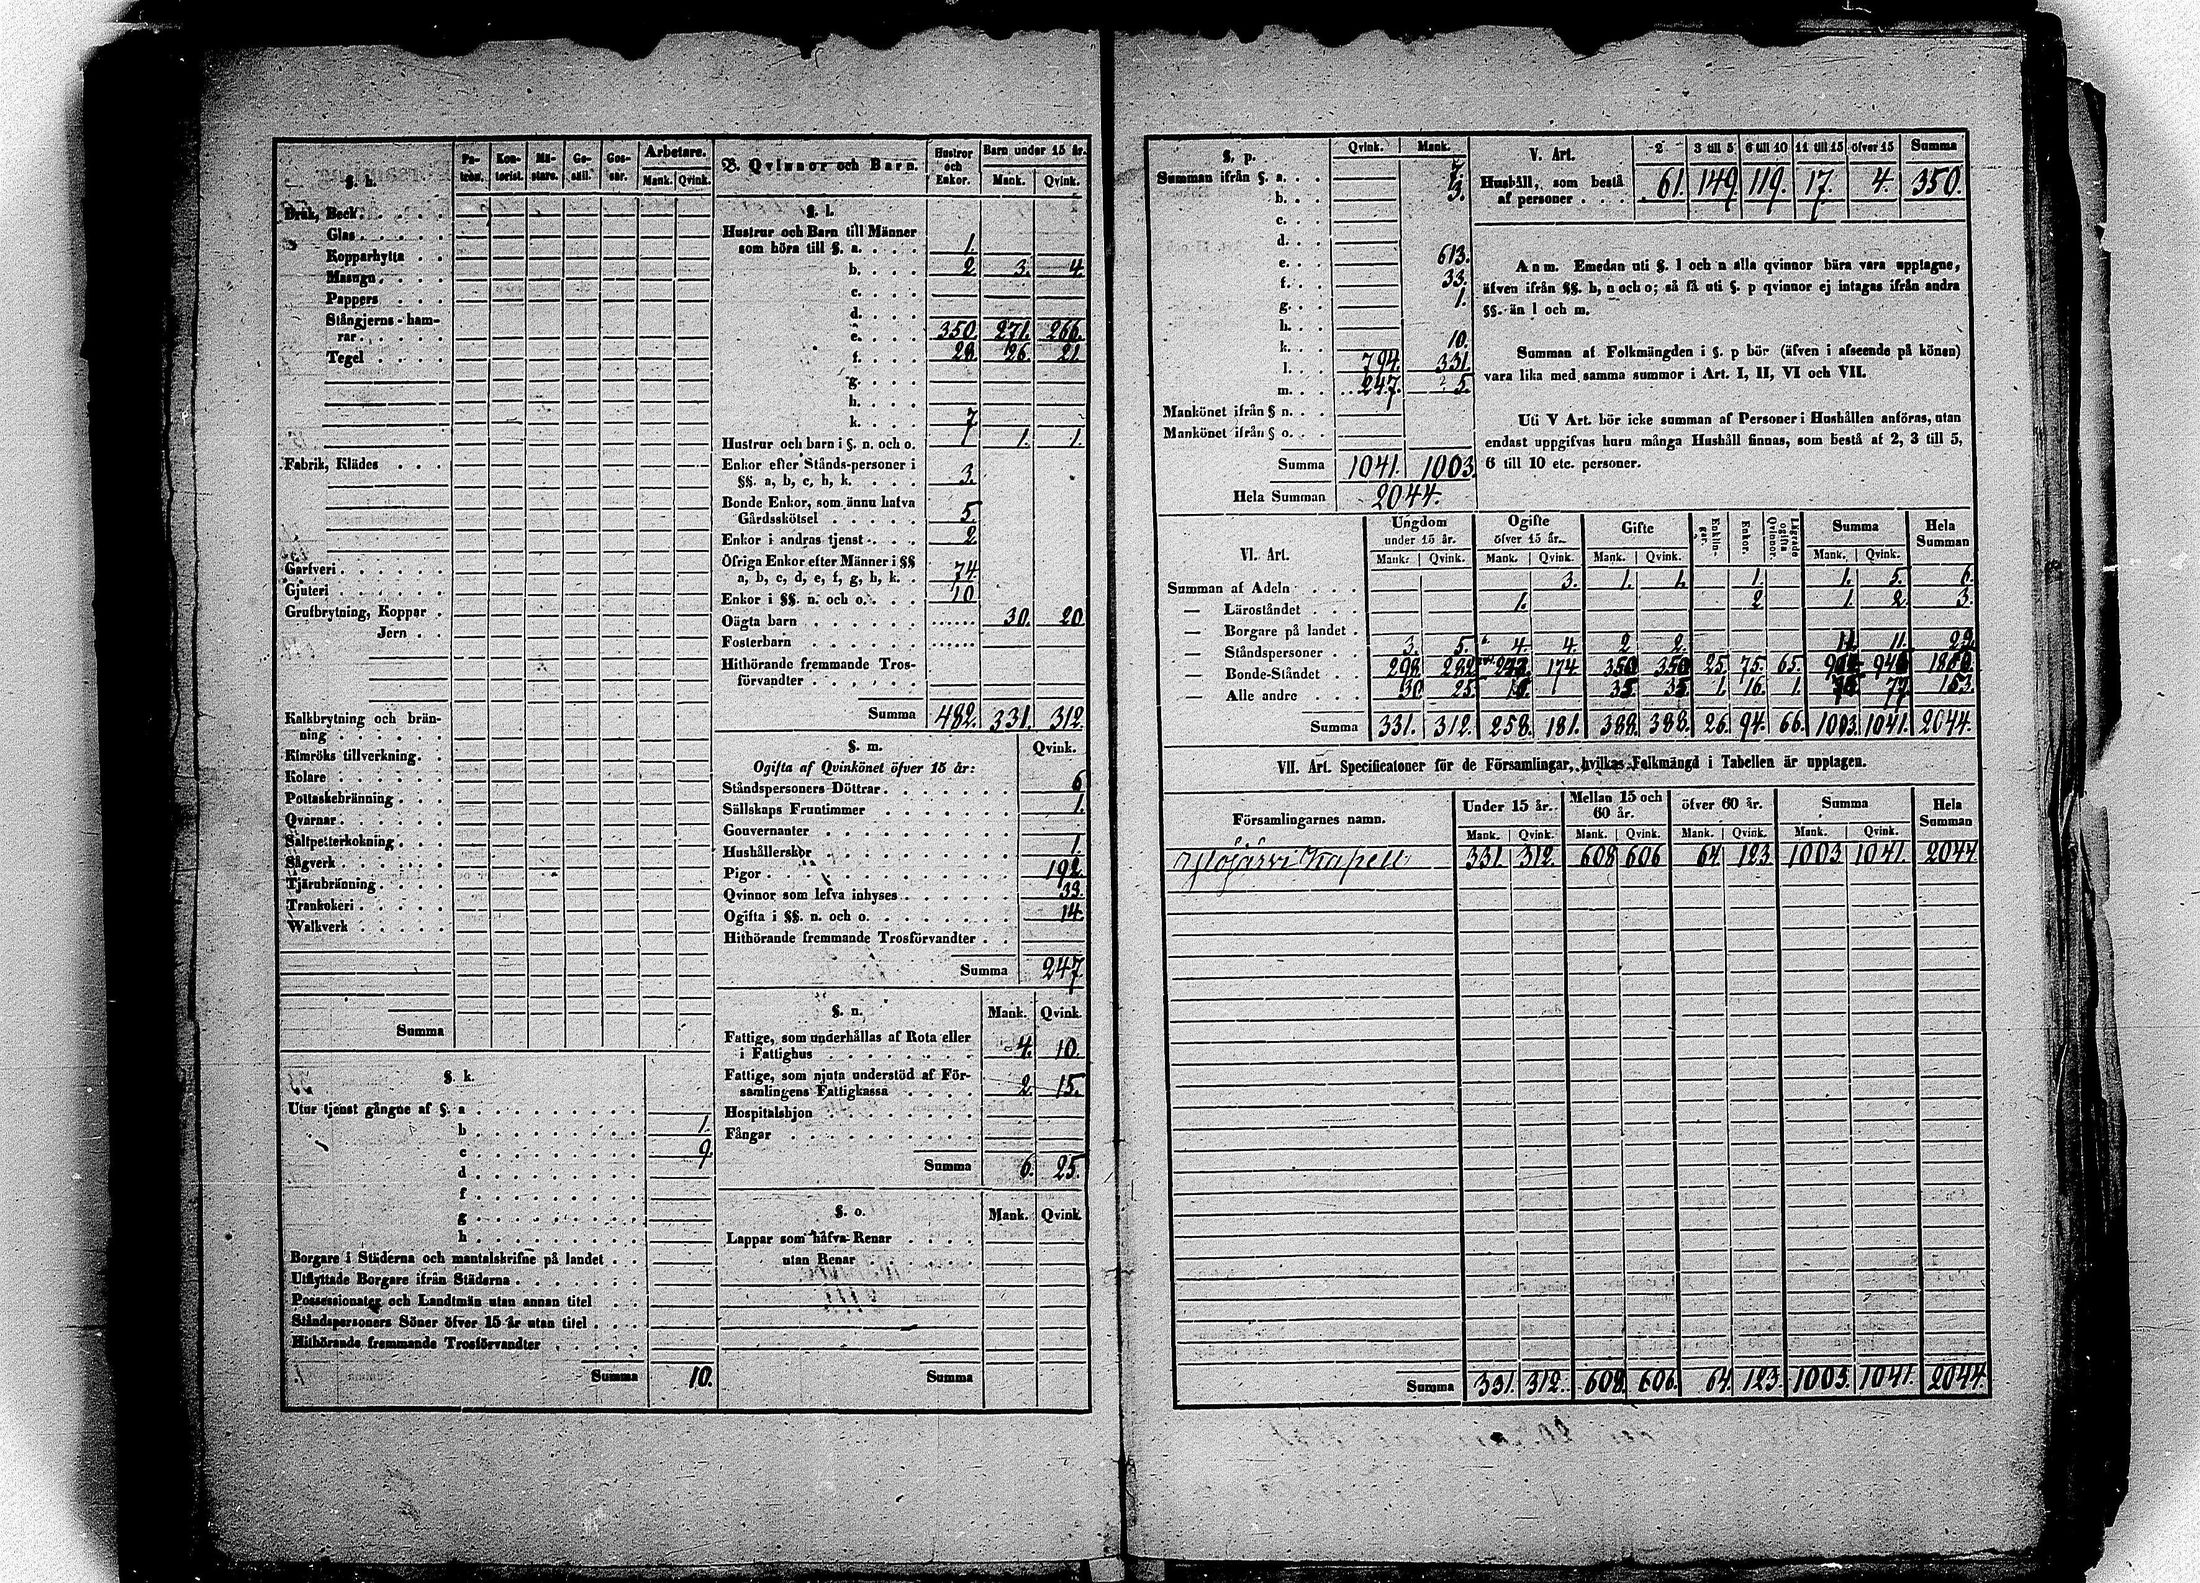 §. h.
Pa-tron. Kon-torist. Mä-stare. Ge-säll. Gos-sar. Arbetare.
Mank. Qvink.
Bruk, Beck
Glas
Kopparhytta
Masugn
Pappers
Stångjerns-ham-
rar
Tegel
Fabrik, Klädes
Garfveri
Gjuteri
Grufbrytning, Koppar
Jern
Kalkbrytning och brän-
ning
Kimröks tillverkning.
Kolare
Pottaskebränning
Qvarnar
Saltpetterkokning
Sågverk
Tjärubränning
Trankokeri
Walkverk
Summa
§. k.
Utur tjenst gångne af §. a
b 1.
c 9
d
f
g
h
Borgare i Städerna och mantalskrifne på landet
Utflyttade Borgare ifrån Städerna
Possessionater och Landtmän utan annan titel
Ståndspersoners Söner öfver 15 år utan titel
Hithörande fremmande Trosförvandter
Summa 10.
B. Qvinnor och Barn. Hustror och Enkor. Barn under 15 år.
Mank. Qvink.
§. l.
Hustrur och Barn till Männer
som höra till §. a. 1.
b. 2 3. 4
c.
d.
e. 350 271. 266.
f. 28 26 21
g.
h.
k. 7
Hustrur och barn i §. n. och o. 1. 1.
Enkor efter Stånds-personer i
§§. a, b, c, h, k. 3.
Bonde Enkor, som ännu hafva
Gårdsskötsel 5.
Enkor i andras tjenst 2
Öfriga Enkor efter Männer i §§
a, b, c, d, e, f, g, h, k. 74
Enkor i §§. n. och o. 10
Oägta barn 30. 20
Fosterbarn
Hithörande fremmande Tros-
förvandter
Summa 482. 331. 312.
§. m. Qvink.
Ogifta af Qvinkönet öfver 15 år:
Ståndspersoners Döttrar 6
Sällskaps Fruntimmer 1.
Gouvernanter
Hushållerskor 1.
Pigor 192.
Qvinnor som lefva inhyses 33.
Ogifta i §§. n. och o. 14
Hithörande fremmande Trosförvandter
Summa 247
§. n. Mank. Qvink.
Fattige, som underhållas af Rota eller
i Fattighus 4. 10.
Fattige, som njuta understöd af För-
samlingens Fattigkassa 2. 15.
Hospitalshjon
Fångar
Summa 6. 25.
§. o. Mank. Qvink.
Lappar som hafva Renar
utan Renar
Summa
§. p. Qvink. Mank.
Summan ifrån §. a.
b. 3.
c.
d.
e. 613.
f. 33.
g. 1.
h.
k. 10.
l. 794. 331.
m. 247. 5.
Mankönet ifrån § n.
Mankönet ifrån § o.
Summa 1041. 1003.
Hela Summan 2044.
V. Art. 2 3 till 5 6 till 10 11 till 15 öfver 15 Summa
Hushåll, som bestå
af personer 61. 149. 119. 17. 4. 350.
Anm. Emedan uti §. l och n alla qvinnor böra vara upptagne,
äfven ifrån §§. h, n och o; så få uti §. p qvinnor ej intagas ifrån andra
§§. än l och m.
Summan af Folkmängden i §. p bör (äfven i afseende på könen)
vara lika med samma summor i Art. I, II, VI och VII.
Uti V Art. bör icke summan af Personer i Hushållen anföras, utan
endast uppgifvas huru många Hushåll finnas, som bestå af 2, 3 till 5,
6 till 10 etc. personer.
VI. Art. Ungdom under 15 år. Ogifte öfver 15 år. Gifte Enklin-gar. Enkor. Lägrade ogifta Qvinnor. Summa Hela Summan
Mank. Qvink. Mank. Qvink. Mank. Qvink. Mank. Qvink.
Summan af Adeln 3. 1. 1. 1. 1. 5. 6.
— Läroståndet 1. 2 1. 2. 3.
— Borgare på landet
— Ståndspersoner 3. 5. 4. 4. 2 2. 11. 11.
— Bonde-Ståndet 298. 282 174 350 350 25. 75. 65.
— Alle andre 30 25. 35 35 1. 16. 1. 77 153.
Summa 331. 312. 258. 181. 388. 388. 26. 94. 66. 1003. 1041. 2044.
VII. Art. Specificationer för de Församlingar, hvilkas Folkmängd i Tabellen är upptagen.
Församlingarnes namn. Under 15 år. Mellan 15 och 60 år. öfver 60 år. Summa Hela Summan
Mank. Qvink. Mank. Qvink. Mank. Qvink. Mank. Qvink.
Ylöjärvi Kapell 331. 312. 608 606 64 123 1003 1041. 2044
Summa 331. 312. 608. 606. 64. 123. 1003. 1041. 2044.